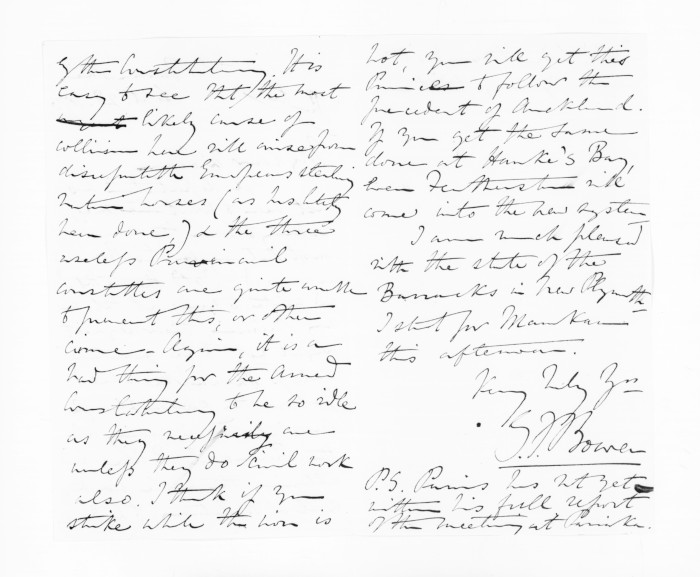 of the Constabulary. It is
easy to see that the most
likely cause of
collision here will arise from
disreputable Europeans stealing
native horses (as has lately
been done,) & the three
useless Provincial
constables are quite unable
to prevent this, or other
crime - Again, it is a
bad thing for the Armed
Constabulary to be so idle
as they necessarily are
unless they do civil work
also. I think if you
strike while the iron is
hot, you will get this
Province to follow the
precedent of Auckland.
If you get the same
done at Hawke's Bay,
Even Featherston will
come into the new system
I am much pleased
with the state of the
Barracks in New Plymouth.
I start for Manukau
this afternoon.
Very truly Yrs
G.F. Bowen
P.S. Parris has not yet
written his full report
of the meeting at